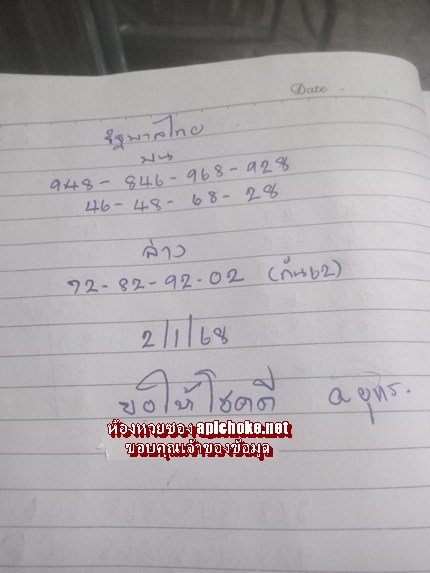 Date
รัฐบาลไทย
บน
948 - 846 - 968 - 928
46 - 48 - 68 - 28
ล่าง
72 - 82 - 92 - 02 (กัน62)
2/1/68
ขอให้โชคดี
ห้องหวยซอง apichoke.net
ขอบคุณเจ้าของข้อมูล